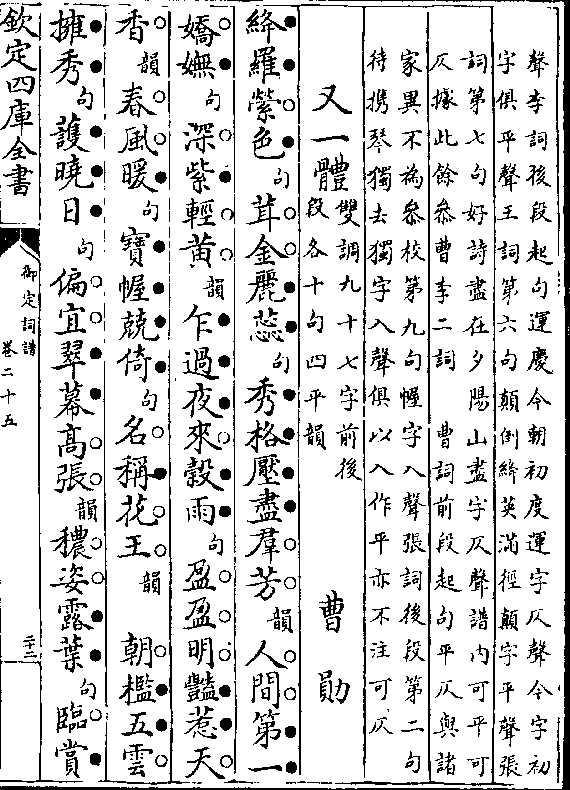 聲李詞後段起句運慶今朝初度運字仄聲今字初
字俱平聲王詞第六句顛倒絳英滿徑顛字平聲張
詞第七句好詩盡在夕陽山盡字仄聲譜内可平可
仄據此餘叅曹李二詞　曹詞前段起句平仄與諸
家異不為叅校第九句幄字入聲張詞後段第二句
待携琴獨去獨字入聲俱以入作平亦不注可仄
又一體雙調九十七字前後段各十句四平韻　曹勛
絳羅縈色句茸金麗蘂句秀格壓盡羣芳韻人間第一
嬌嫵句深紫輕黃韻乍過夜來穀雨句盈盈明豔惹天
香韻春風暖句寶幄競倚句名稱花王韻　朝檻五雲
擁秀句護曉日句偏宜翠幕高張韻穠姿露葉句臨賞
欽定四庫全書
御定詞譜
卷二十五
二十二